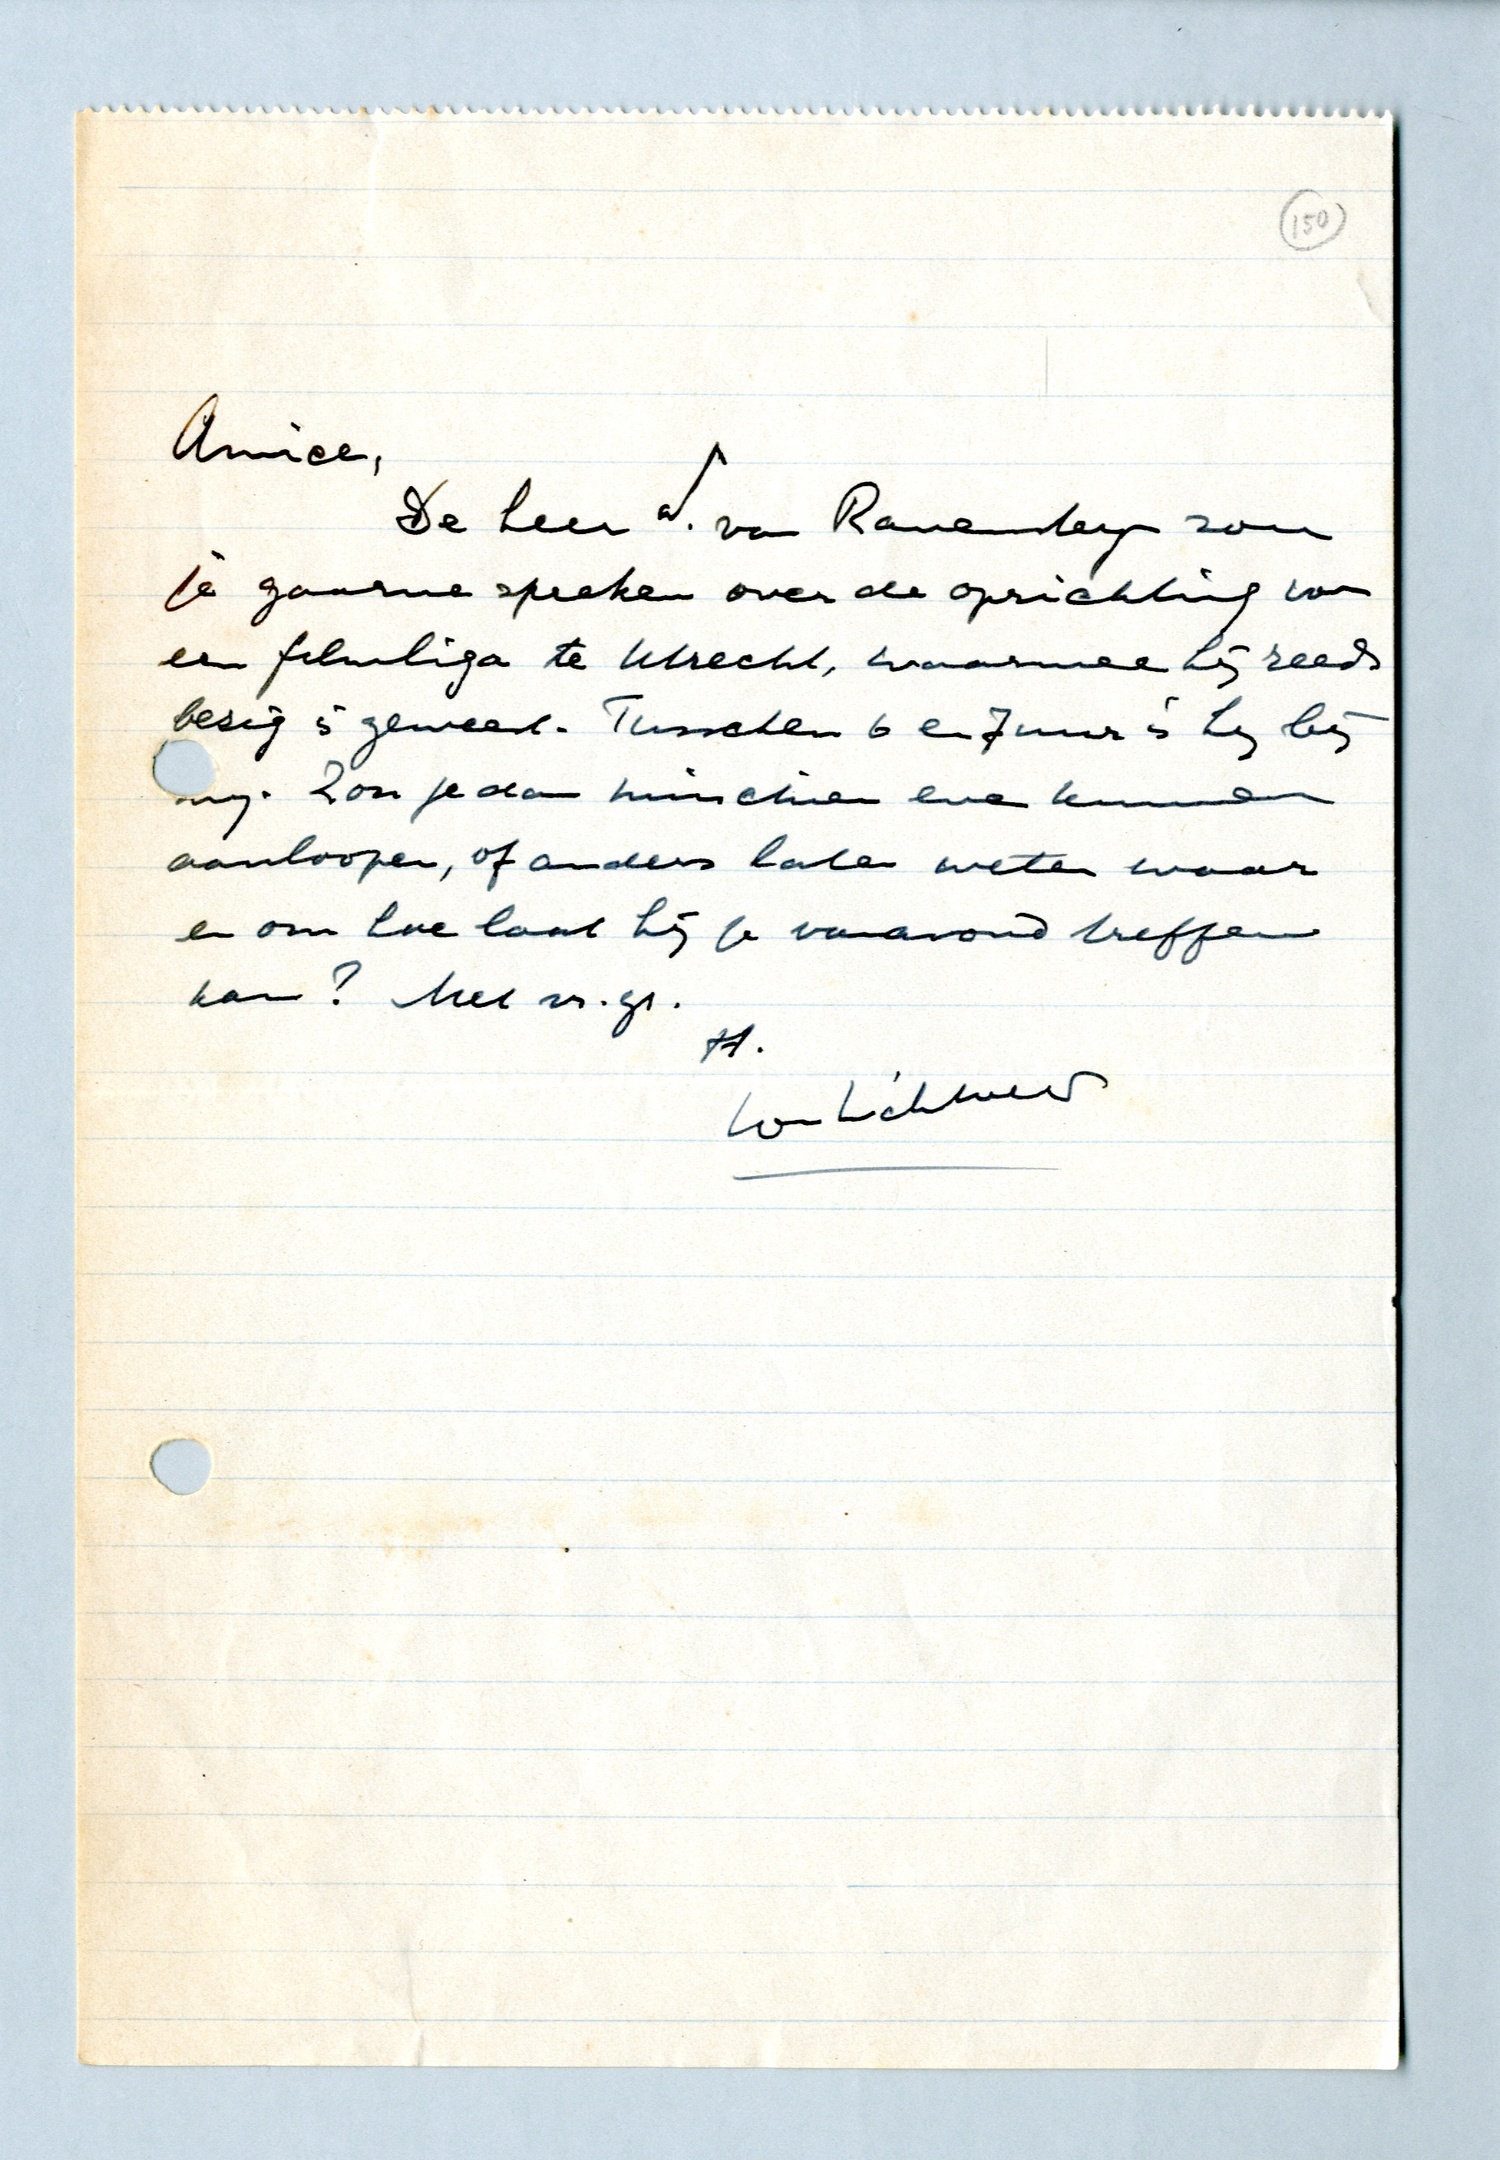 150
Amice,
De heer v. van Ravensteyn zou
je gaarne spreken over de oprichting van
een filmliga te Utrecht, waarmee hij reeds
bezig is geweest. Tusschen 6 en 7 uur is hij bij
mij. Zou je dan misschien even kunnen
aanloopen, of anders laten weten waar
en om hoe laat hij je vanavond treffen
kan? Met vr. gr.
tt.